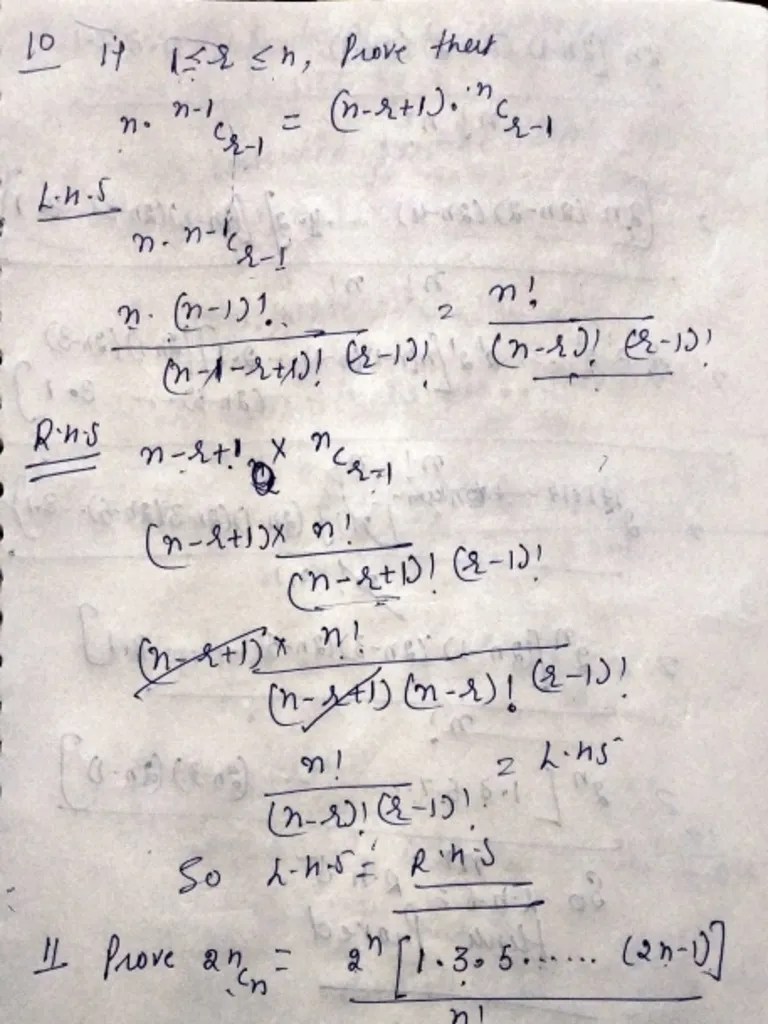 10 if 1≤r≤n, Prove that
n. n-1Cr-1 = (n-r+1). nCr-1
L.H.S
n. n-1Cr-1
n. (n-1)! / (n-1-r+1)! (r-1)! = n! / (n-r)! (r-1)!
R.H.S n-r+1 x nCr-1
(n-r+1)x n! / (n-r+1)! (r-1)!
(n-r+1)x n! / (n-r+1) (n-r)! (r-1)!
n! / (n-r)! (r-1)! = L.HS
So L.H.S = R.H.S
11 Prove 2nCn = 2^n [1.3.5...... (2n-1)] / n!